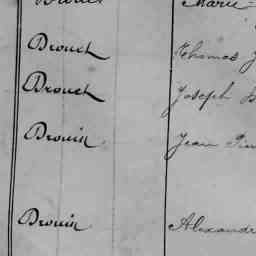 Marie
Drouet Thomas J
Drouet Joseph
Drouin Jean Pier
Drouin Alexandre